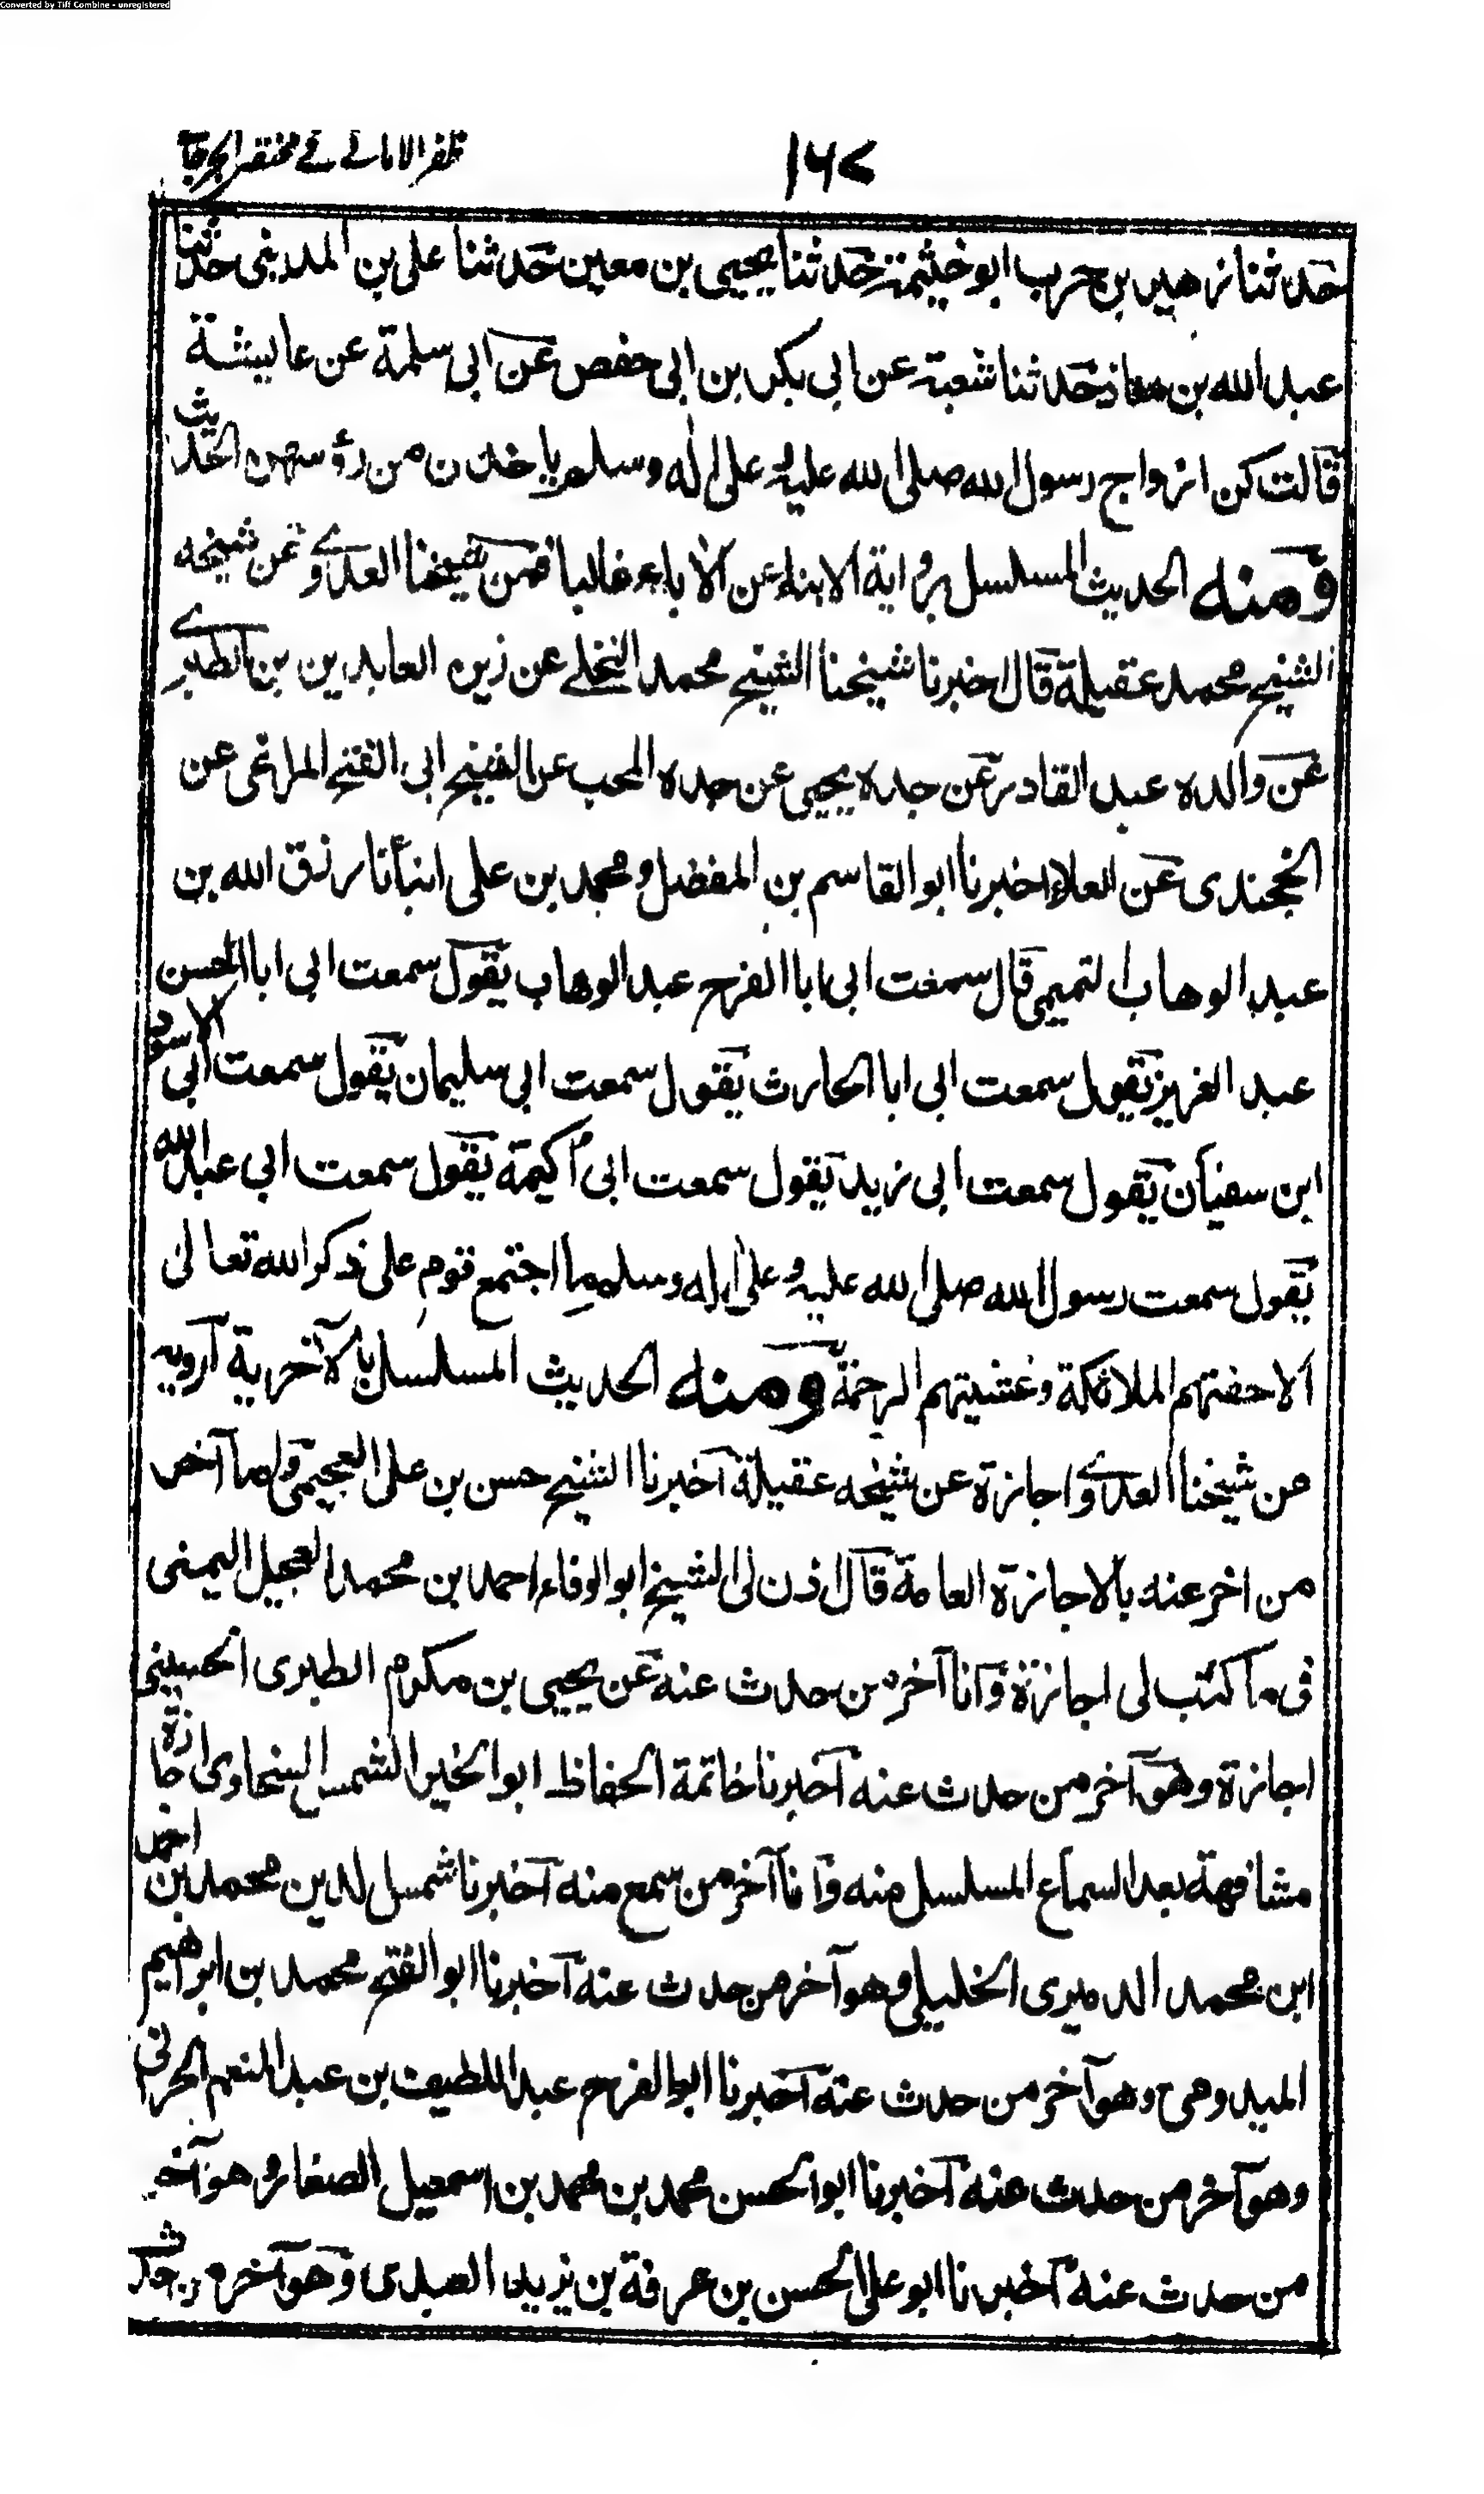 Converted by Tiff Combine - unregistered
ظفر الامانے فے مختصر الجرجانے
۱۶۷
حدثنا زهير بن حرب ابو خيثمة حدثنا يحيى بن معين حدثنا على بن المدينى حدثنا
عبد الله بن معاذ حدثنا شعبة عن ابى بكر بن ابى حفص عن ابى سلمة عن عايشة
قالت كن ازواج رسول الله صلى الله عليه وعلى اله وسلم ياخذن من رؤسهن الحديث
ومنه الحديث المسلسل برواية الابناء عن الاباء غالبا فمن شيخنا العداوے عن شيخه
الشيخ محمد عقيلة قال اخبرنا شيخنا الشيخ محمد النخلے عن زين العابدين بن الطبرے
عن والده عبد القادر عن جده يحيى عن جده المحب عن الشيخ ابى الفتح المراغى عن
الخجندى عن العلاء اخبرنا ابو القاسم بن المفضل ومحمد بن على انبأنا رزق الله بن
عبد الوهاب التميمى قال سمعت ابى ابا الفرج عبد الوهاب يقول سمعت ابى ابا الحسن
عبد العزيز يقول سمعت ابى ابا الحارث يقول سمعت ابى سليمان يقول سمعت ابى الاسود
ابن سفيان يقول سمعت ابى زيد يقول سمعت ابى أكيمة يقول سمعت ابى عبد الله
يقول سمعت رسول الله صلى الله عليه وعلى اله وسلم ما اجتمع قوم على ذكر الله تعالى
الا حفتهم الملائكة وغشيتهم الرحمة ومنه الحديث المسلسل بالآخرية آرويه
من شيخنا العداوے اجازة عن شيخه عقيلة آخبرنا الشيخ حسن بن على العجيمى ولهما آخر
من اخر عنه بالاجازة العامة قال اذن لى الشيخ ابو الوفاء احمد بن محمد العجيل اليمنى
فى ما كتب لى اجازة وآنا آخر من حدث عنه عن يحيى بن مكرم الطبرى الحسينى
اجازة وهو آخر من حدث عنه آخبرنا خاتمة الحفاظ ابو الخير الشمس السخاوى اجازة
مشافهة بعد السماع المسلسل منه وآنا آخر من سمع منه آخبرنا شمس الدين محمد بن احمد
ابن محمد الدميرى الخليلى وهو آخر من حدث عنه آخبرنا ابو الفتح محمد بن ابراهيم
الميدومى وهو آخر من حدث عنه آخبرنا ابو الفرج عبد اللطيف بن عبد المنعم الحرانى
وهو آخر من حدث عنه آخبرنا ابو الحسن محمد بن محمد بن اسمعيل الصفار وهو آخر
من حدث عنه آخبرنا ابو على الحسن بن عرفة بن يزيد العبدى وهو آخر من حدث